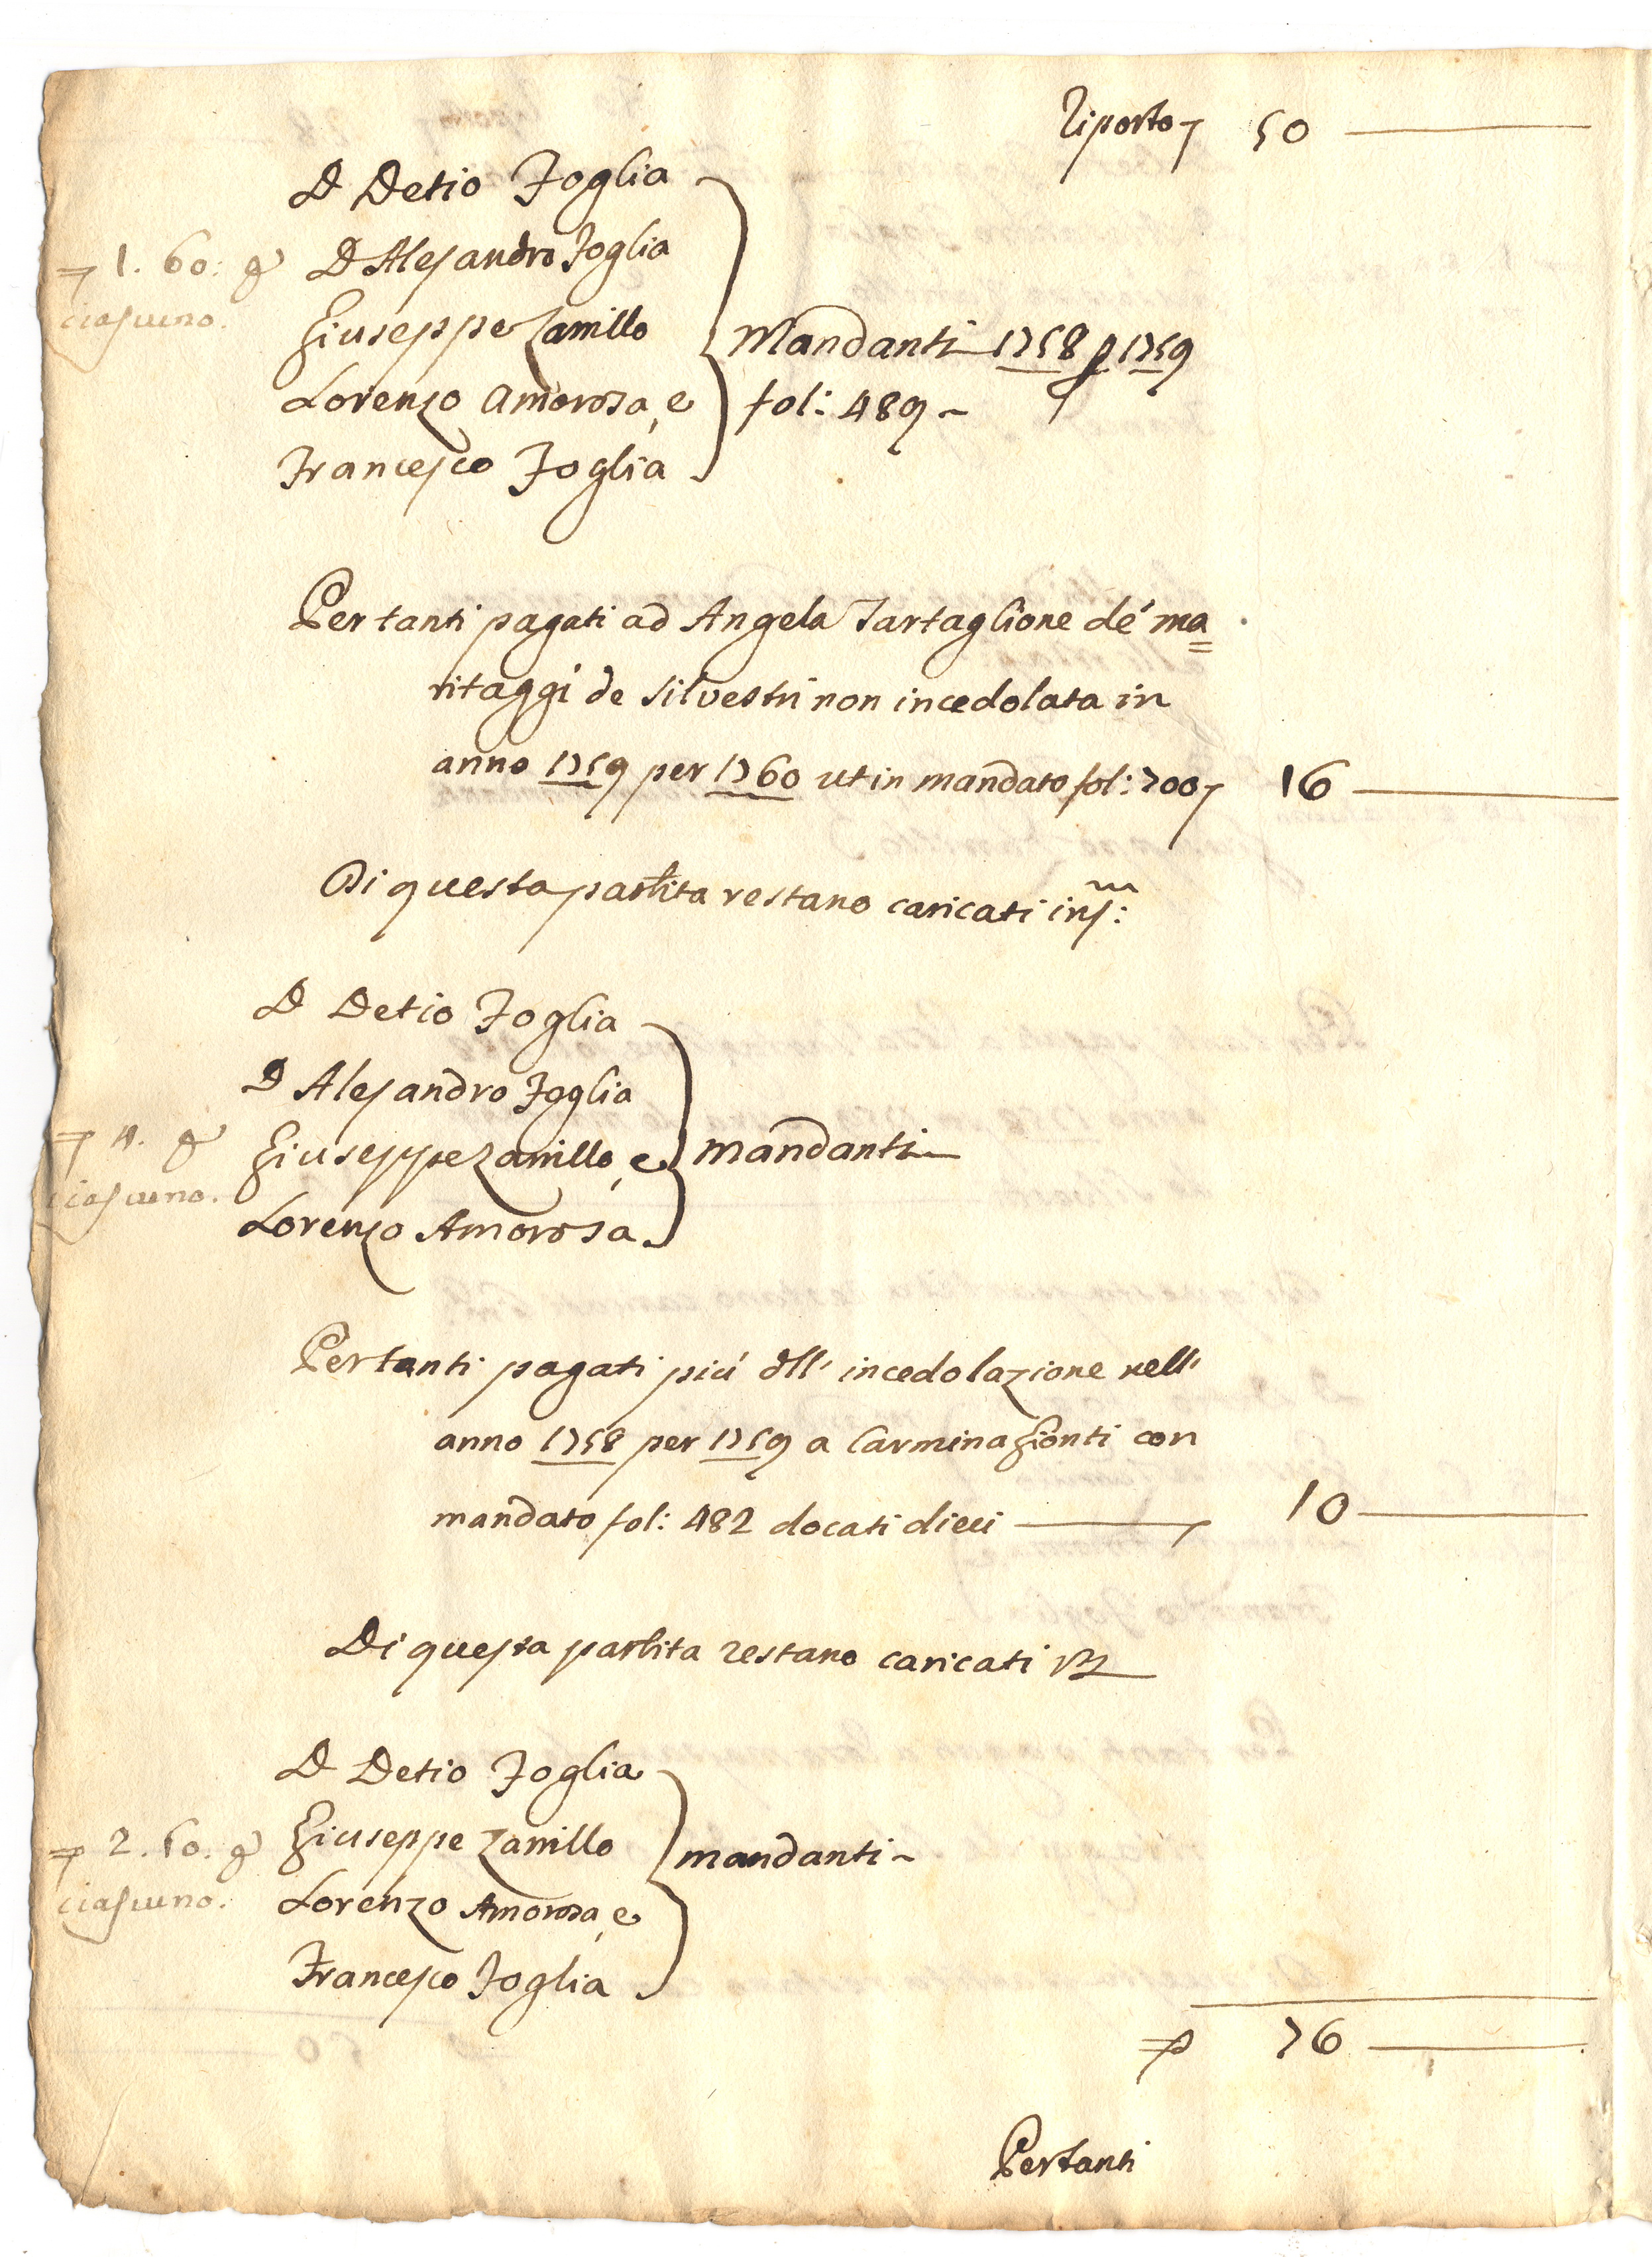 Riporto 50
D Detio Foglia
D Alesandro Foglia
1. 60: p ciascuno.
Giuseppe Zarrillo
Lorenzo Amorosa, e
Francesco Foglia
Mandanti 1758 p 1759
fol: 489
Per tanti pagati ad Angela Tartaglione de' ma=
ritaggi de Silvestri non incedolata in
anno 1759 per 1760 ut in mandato fol: 700 16
Di questa partita restano caricati ins:m
D Detio Foglia
D Alesandro Foglia
4. p ciascuno.
Giuseppe Zarrillo, e
Lorenzo Amorosa.
mandanti
Per tanti pagati più dll' incedolazione nell'
anno 1758 per 1759 a Carmina Gionti con
mandato fol: 482 docati dieci 10
Di questa partita restano caricati
D Detio Foglia
2. 50. p ciascuno.
Giuseppe Zarrillo
Lorenzo Amorosa, e
Francesco Foglia
mandanti
76
Per tanti